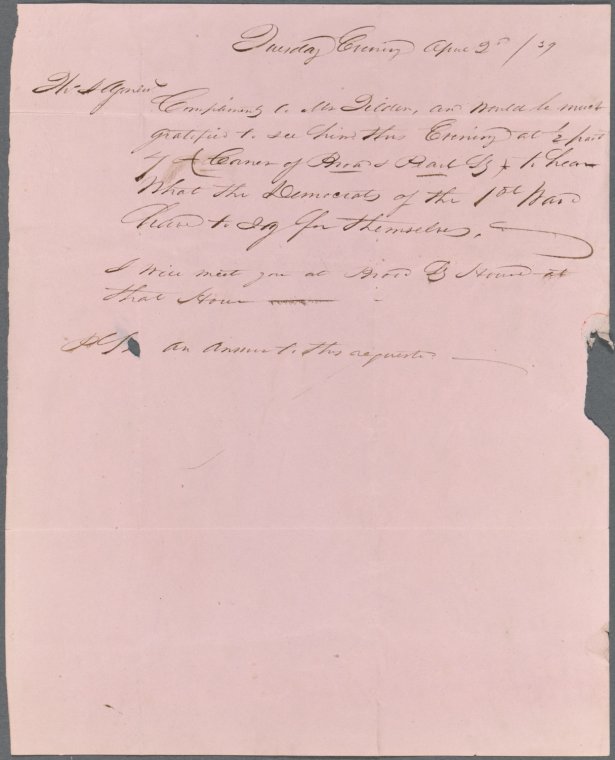 Tuesday Evening April 2d /39
Agnew
Compliments to Mr Tilden, and would be much
gratified to see him this Evening at ½ past
7 Corner of Broad & to hear
What the Democrats of the 1st Ward
have to say for themselves.
I will meet you at Broad St House at
that Hour
an answer to this request